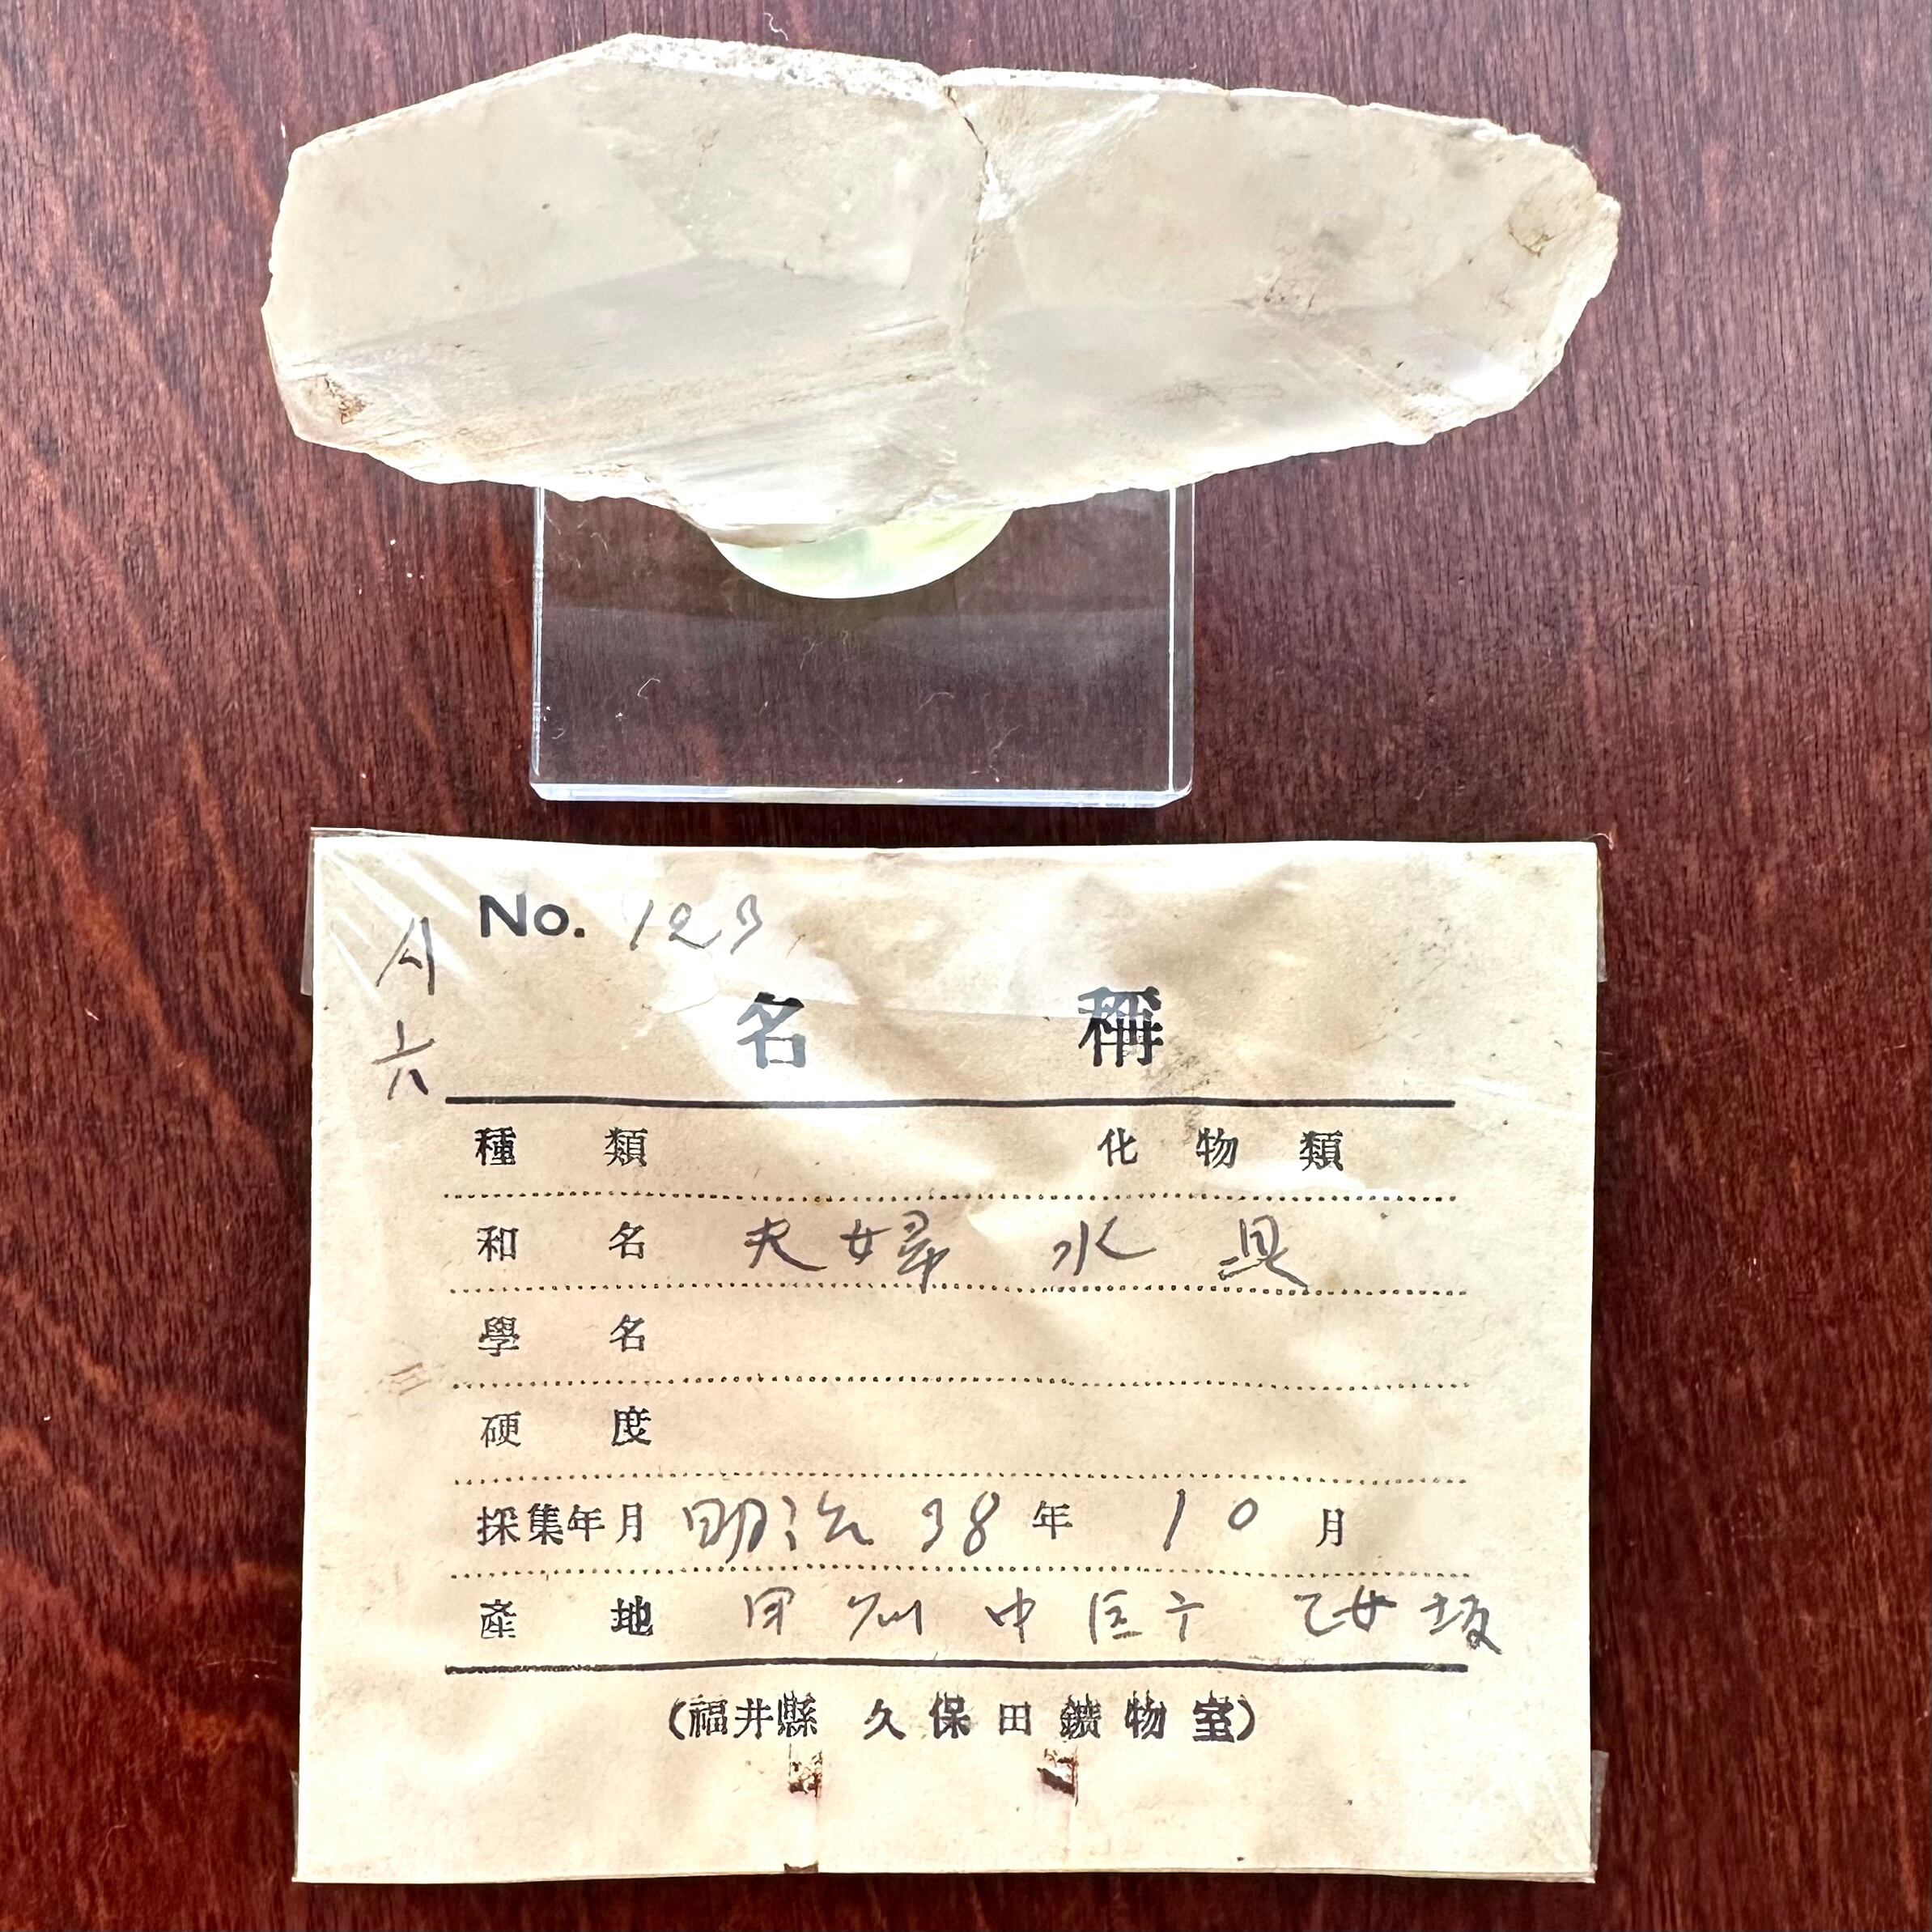 No. 123
A
六
名 稱
種 類 化 物 類
和 名 夫婦 水 晶
學 名
硬 度
採集年月 明治 38 年 10 月
產 地 甲 州 中 巨 乙女 坂
(福井縣 久 保 田 鑛 物 室)